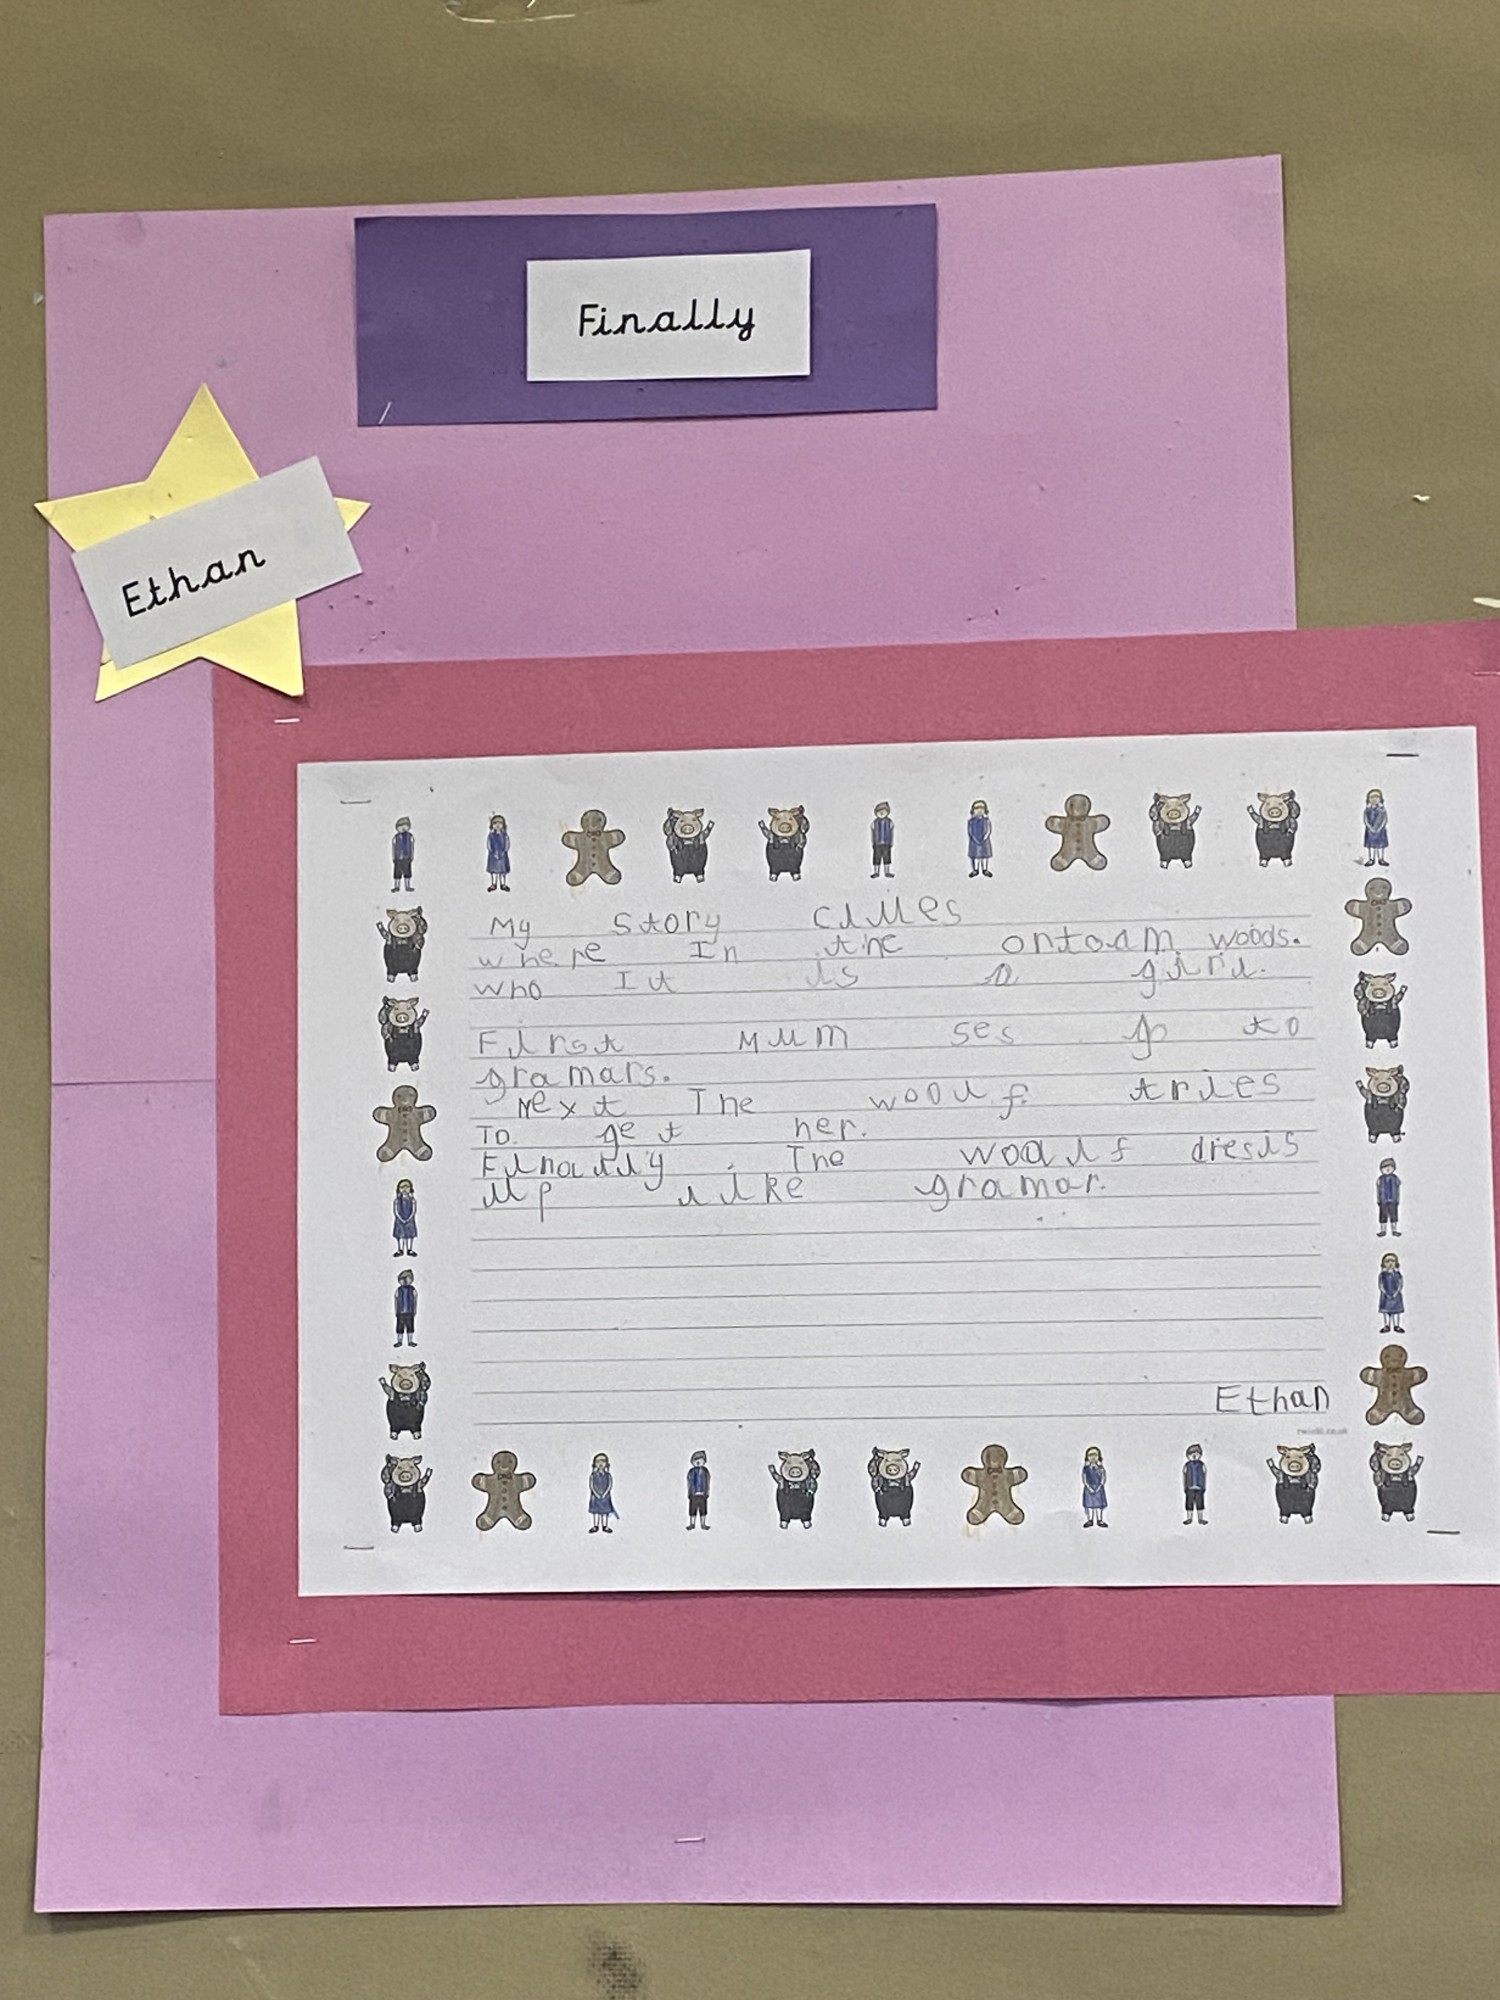 Finally
Ethan
My story clues
where In the ontoam woods.
who It is a girl.
First mum ses go to
gramars.
Next The woouf tries
To get her.
Finally The woalf dresis
up like gramar.
Ethan
twinkl.co.uk